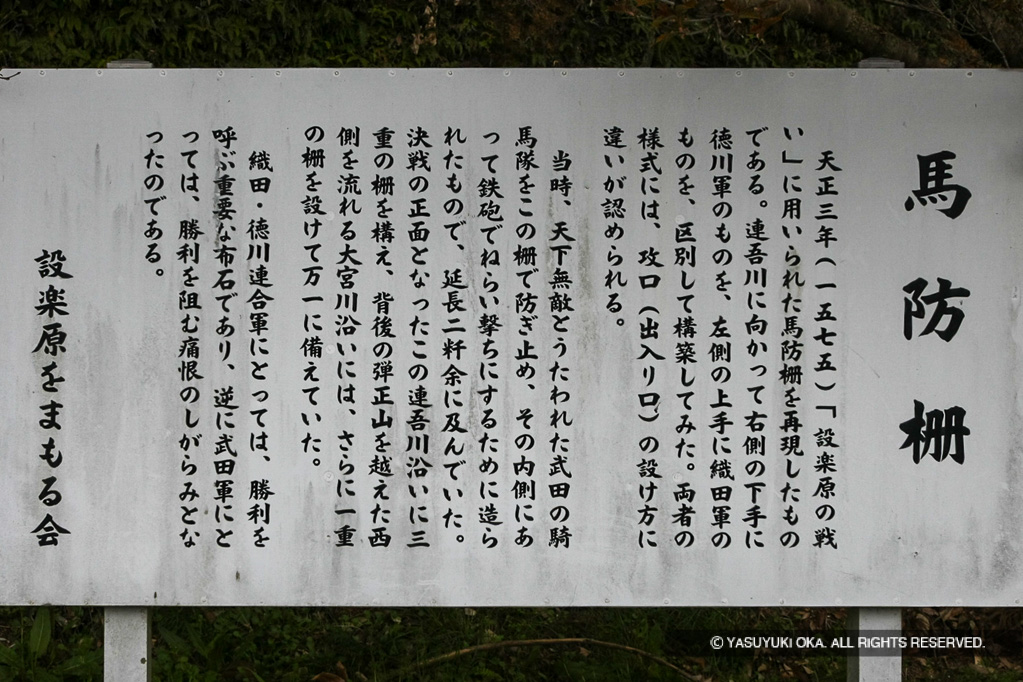 馬防柵
天正三年(一五七五)「設楽原の戦
い」に用いられた馬防柵を再現したもの
である。連吾川に向かって右側の下手に
徳川軍のものを、左側の上手に織田軍の
ものを、区別して構築してみた。両者の
様式には、攻口(出入り口)の設け方に
違いが認められる。
当時、天下無敵とうたわれた武田の騎
馬隊をこの柵で防ぎ止め、その内側にあ
って鉄砲でねらい撃ちにするために造ら
れたもので、延長二粁余に及んでいた。
決戦の正面となったこの連吾川沿いに三
重の柵を構え、背後の弾正山を越えた西
側を流れる大宮川沿いには、さらに一重
の柵を設けて万一に備えていた。
織田・徳川連合軍にとっては、勝利を
呼ぶ重要な布石であり、逆に武田軍にと
っては、勝利を阻む痛恨のしがらみとな
ったのである。
設楽原をまもる会
© YASUYUKI OKA. ALL RIGHTS RESERVED.